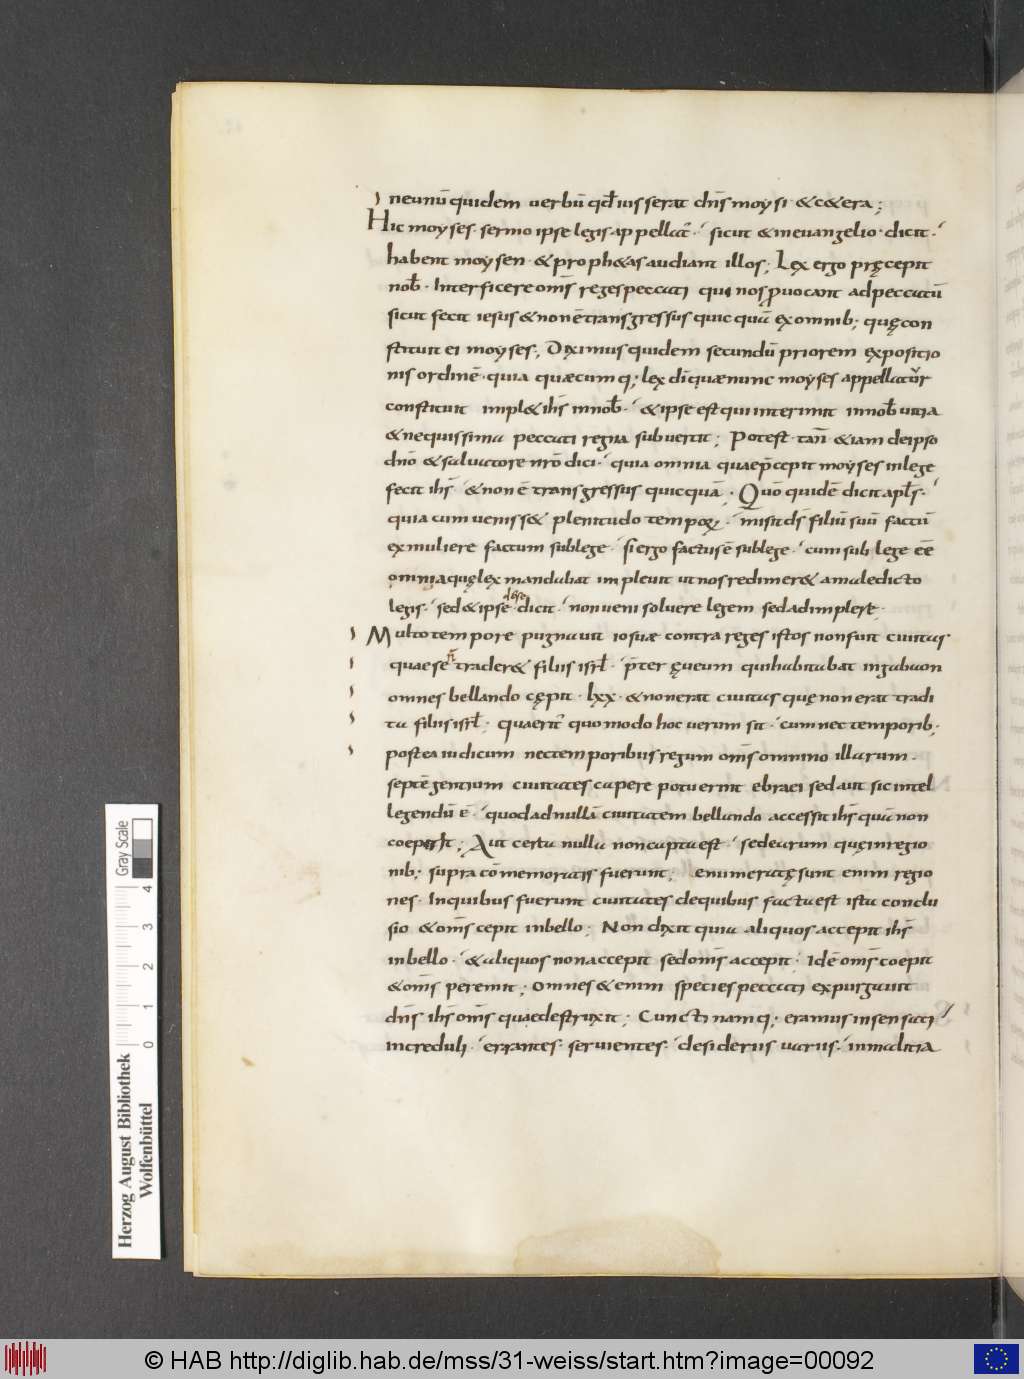 ne unū quidem verbū qđ iusserat dn̄s moysi & c&era;
Hic moyses sermo ipse legis appellat̄ · sicut & in evangelio · dicit ·
habent moysen · & proph&as audiant illos; Lex ergo pręcepit
nob̄ · Interficere om̄s reges peccati qui nos ꝓvocant ad peccatū
sicut fecit iesus & non ē transgressus quicquā ex omnib; quę con
stituit ei moyses; Diximus quidem secundū priorem expositio
nis ordinē · quia quæcumq; lex dī quæ nunc moyses appellatur
constituit impl& ih̄s in nob̄ · & ipse est qui interimit in nob̄ vitia
& nequissima peccati regna subvertit; Potest · tam̄ & iam de ipso
dn̄o & salvatore nr̄o dici · quia omnia quae p̄cepit moyses in lege
fecit ih̄s · & non ē transgressus quicquā · Quō quidē dicit apl̄s ·
quia cum veniss& plenitudo tempoꝝ · misit ds̄ filiū suū factū
ex muliere factum sub lege · si ergo factus ē sub lege · cum sub lege eē
omnia quę lex mandabat implevit ut nos redimer& a maledicto
legis · sed & ipse de se dicit · non veni solvere legem sed adimplere ·
Multo tempore pugnavit iosuæ contra reges istos non fuit civitas
quae se n̄ trader& filiis isrl̄ · p̄ter ęveum qui habitabat in gabaon
omnes bellando cępit · lxx · & non erat civitas quę non erat tradi
ta filiis isrl̄ · quaerit̄ quomodo hoc verum sit · cum nec temporib;
postea iudicum nec temporibus regum om̄s omnino illarum
septē gentium civitates capere potuerint ebraei sed aut sic intel
legendū ē · quod ad nullā civitatem bellando accessit ih̄s quā non
coeperit; Aut certa nulla non capta est · sed earum quę in regio
nib; supra cōmemoratis fuerunt; enumeratę sunt enim regio
nes · In quibus fuerunt civitates de quibus facta est ista conclu
sio & om̄s cepit in bello; Non dixit quia aliquos accepit ih̄s
in bello · & aliquos non accepit sed om̄s accepit · Idē om̄s coepit
& om̄s peremit; omnes & enim species peccati expurgavit
dn̄s ih̄s om̄s quae destruxit; Cuncti namq; eramus insensati
increduli · errantes · servientes · desideriis variis · in malitia
Gray Scale
0 1 2 3 4
Herzog August Bibliothek
Wolfenbüttel
© HAB http://diglib.hab.de/mss/31-weiss/start.htm?image=00092